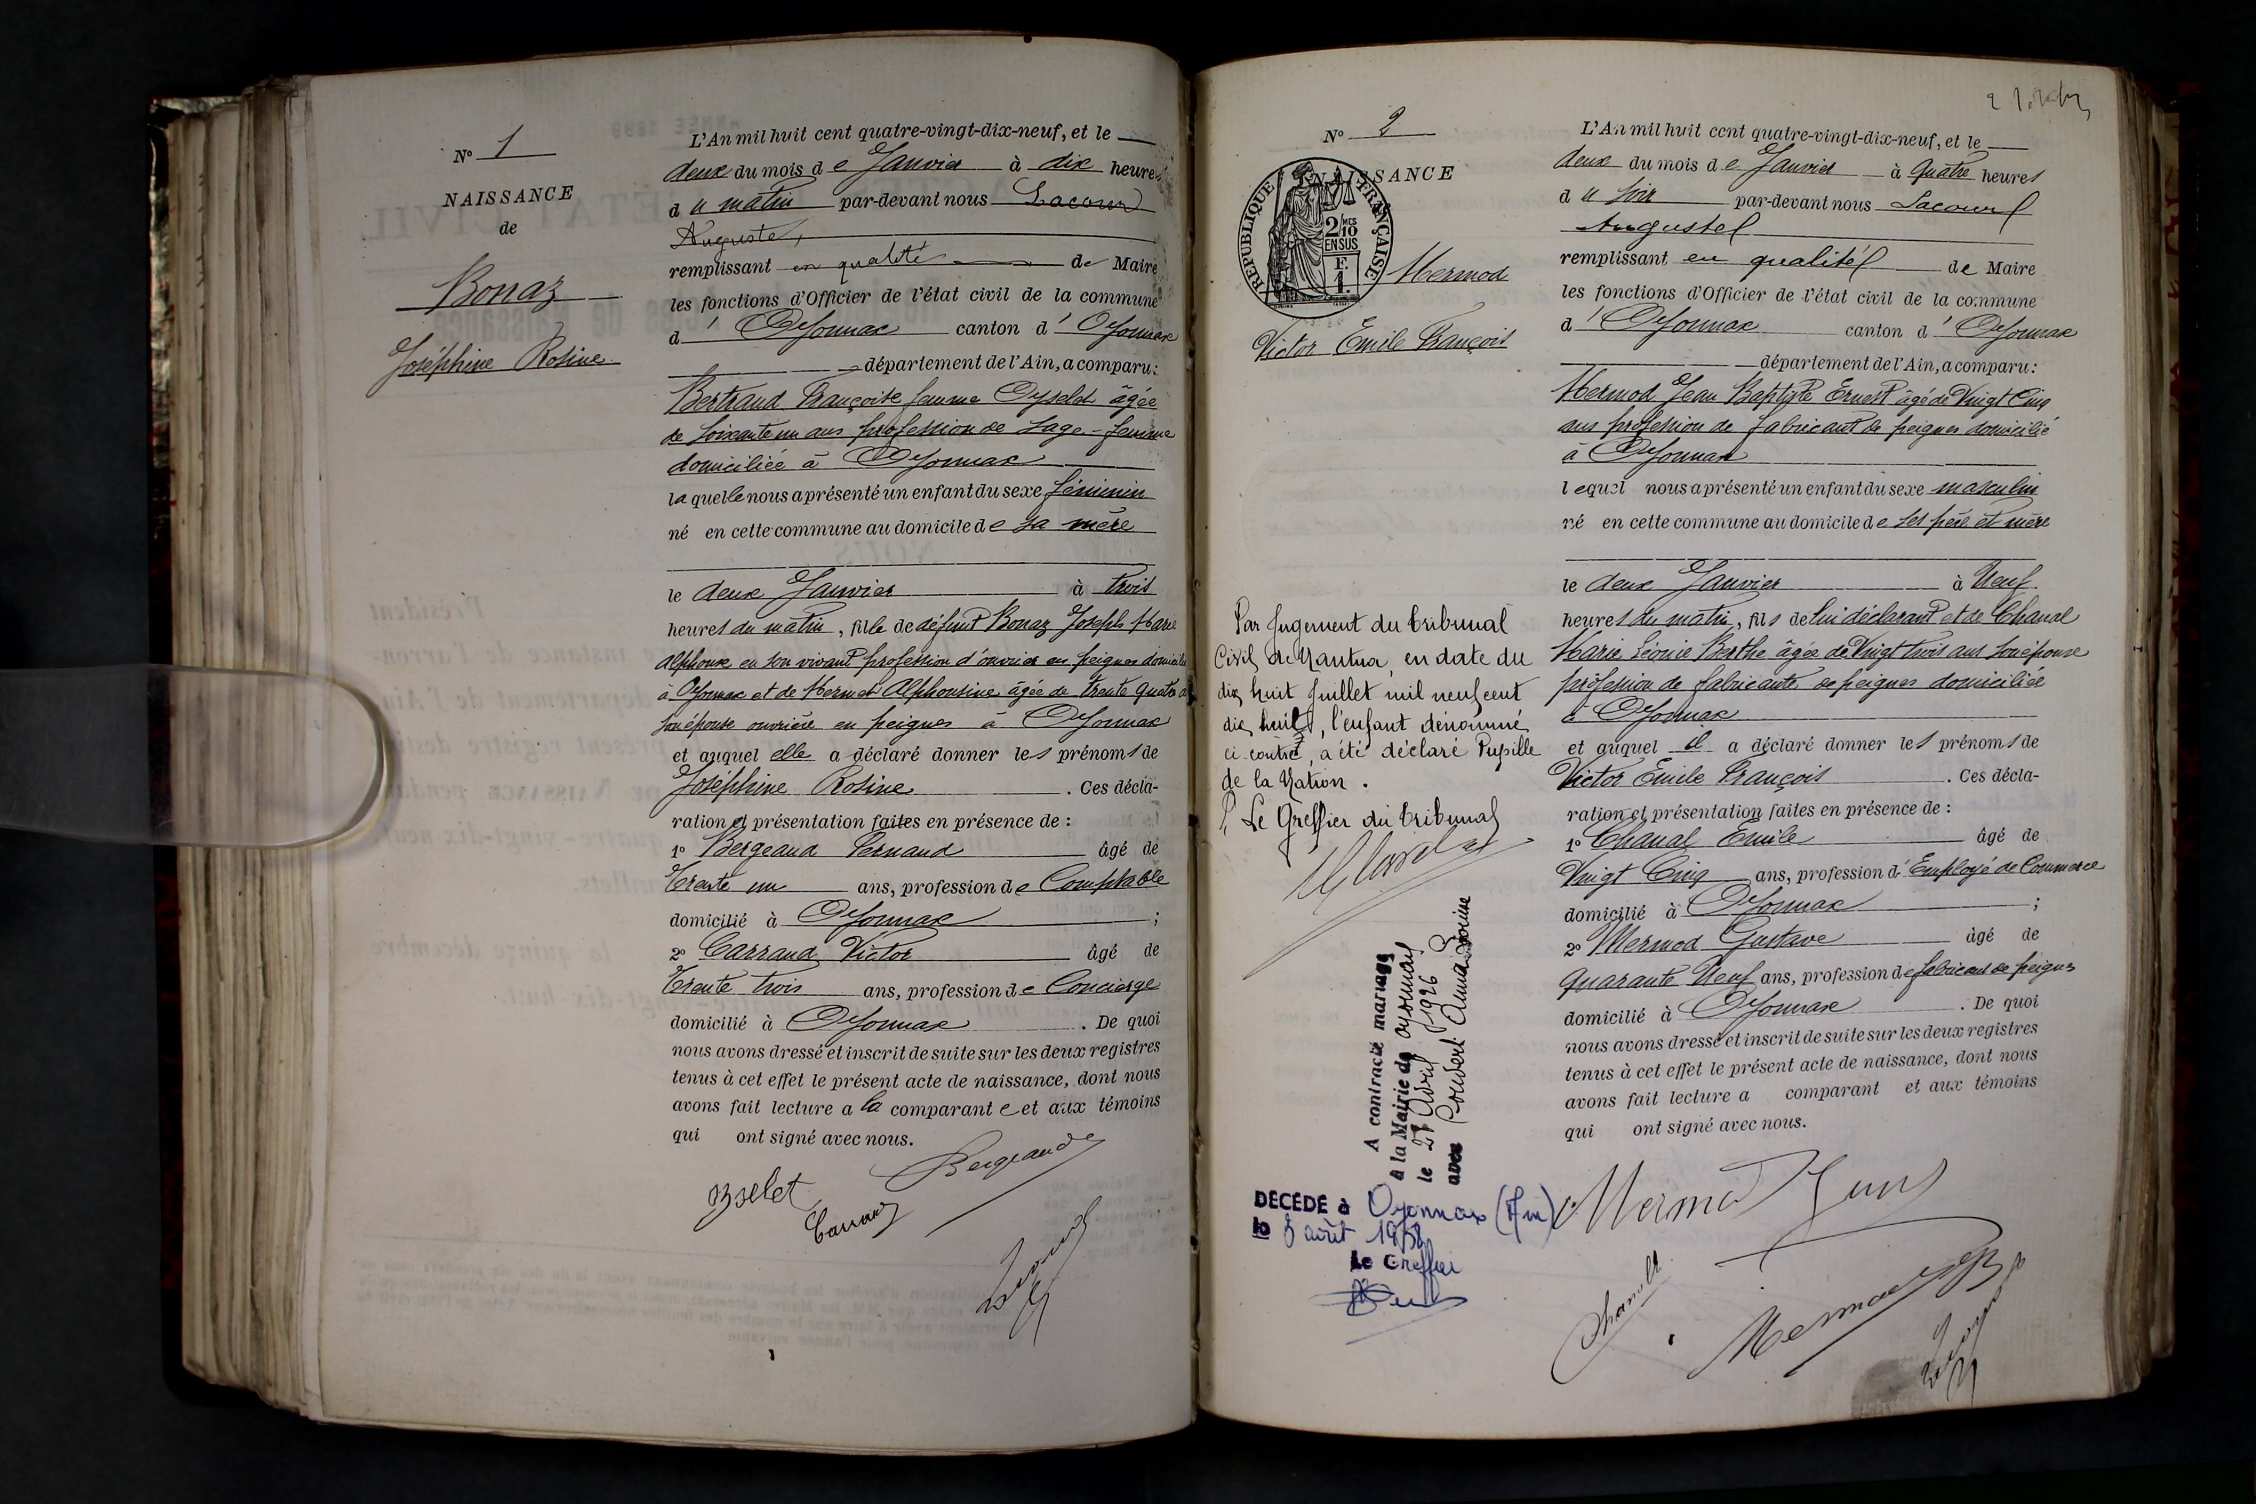 N° 1
NAISSANCE
de
Bonaz
Joséphine Rosine
L'An mil huit cent quatre-vingt-dix-neuf, et le
deux du mois de Janvier à dix heures
du matin par-devant nous Lacour
Auguste,
remplissant en qualité de Maire
les fonctions d'Officier de l'état civil de la commune
d' Oyonnax canton d' Oyonnax
département de l'Ain, a comparu :
Bertrand Françoise femme âgée
de soixante un ans profession de sage-femme
domiciliée à Oyonnax
laquelle nous a présenté un enfant du sexe féminin
né en cette commune au domicile de sa mère
le deux Janvier à trois
heures du matin, fille de défunt Bonaz Joseph Marie
Alphonse en son vivant profession d'ouvrier en peignes domicilié
à Oyonnax et de Mermet Alphonsine âgée de trente quatre
son épouse ouvrière en peignes à Oyonnax
et auquel elle a déclaré donner les prénoms de
Joséphine Rosine . Ces décla-
ration et présentation faites en présence de :
1° Bergeaud Fernand âgé de
Trente un ans, profession de Comptable
domicilié à Oyonnax ;
2° Carraud Victor âgé de
Trente trois ans, profession de Concierge
domicilié à Oyonnax . De quoi
nous avons dressé et inscrit de suite sur les deux registres
tenus à cet effet le présent acte de naissance, dont nous
avons fait lecture a la comparante et aux témoins
qui ont signé avec nous.
Bergeaud
N° 2
NAISSANCE
REPUBLIQUE FRANÇAISE
2/10 MES
EN SUS
F.
1.
Mermod
Victor Emile François
Par Jugement du tribunal
Civil de Nantua, en date du
dix huit Juillet mil neuf cent
dix huit, l'enfant dénommé
ci contre, a été déclaré Pupille
de la Nation.
Le Greffier du tribunal
A contracté mariage
à la Mairie de Oyonnax
le 27 Avril 1926
avec
DÉCÉDÉ à Oyonnax (Ain)
le 8 août
Le Greffier
L'An mil huit cent quatre-vingt-dix-neuf, et le
deux du mois de Janvier à Quatre heures
du soir par-devant nous Lacour
Auguste
remplissant en qualité de Maire
les fonctions d'Officier de l'état civil de la commune
d' Oyonnax canton d' Oyonnax
département de l'Ain, a comparu :
Mermod Jean Baptiste Ernest âgé de Vingt Cinq
ans profession de fabricant de peignes domicilié
à Oyonnax
lequel nous a présenté un enfant du sexe masculin
né en cette commune au domicile de ses père et mère
le deux Janvier à Neuf
heures du matin, fils de lui déclarant et de Chanal
Marie Léonie Berthe âgée de Vingt trois ans son épouse
profession de fabricante de peignes domiciliée
à Oyonnax
et auquel il a déclaré donner les prénoms de
Victor Emile François . Ces décla-
ration et présentation faites en présence de :
1° Chanal Emile âgé de
Vingt Cinq ans, profession d'Employé de Commerce
domicilié à Oyonnax ;
2° Mermod Gustave âgé de
Quarante Neuf ans, profession de fabricant de peignes
domicilié à Oyonnax . De quoi
nous avons dressé et inscrit de suite sur les deux registres
tenus à cet effet le présent acte de naissance, dont nous
avons fait lecture a comparant et aux témoins
qui ont signé avec nous.